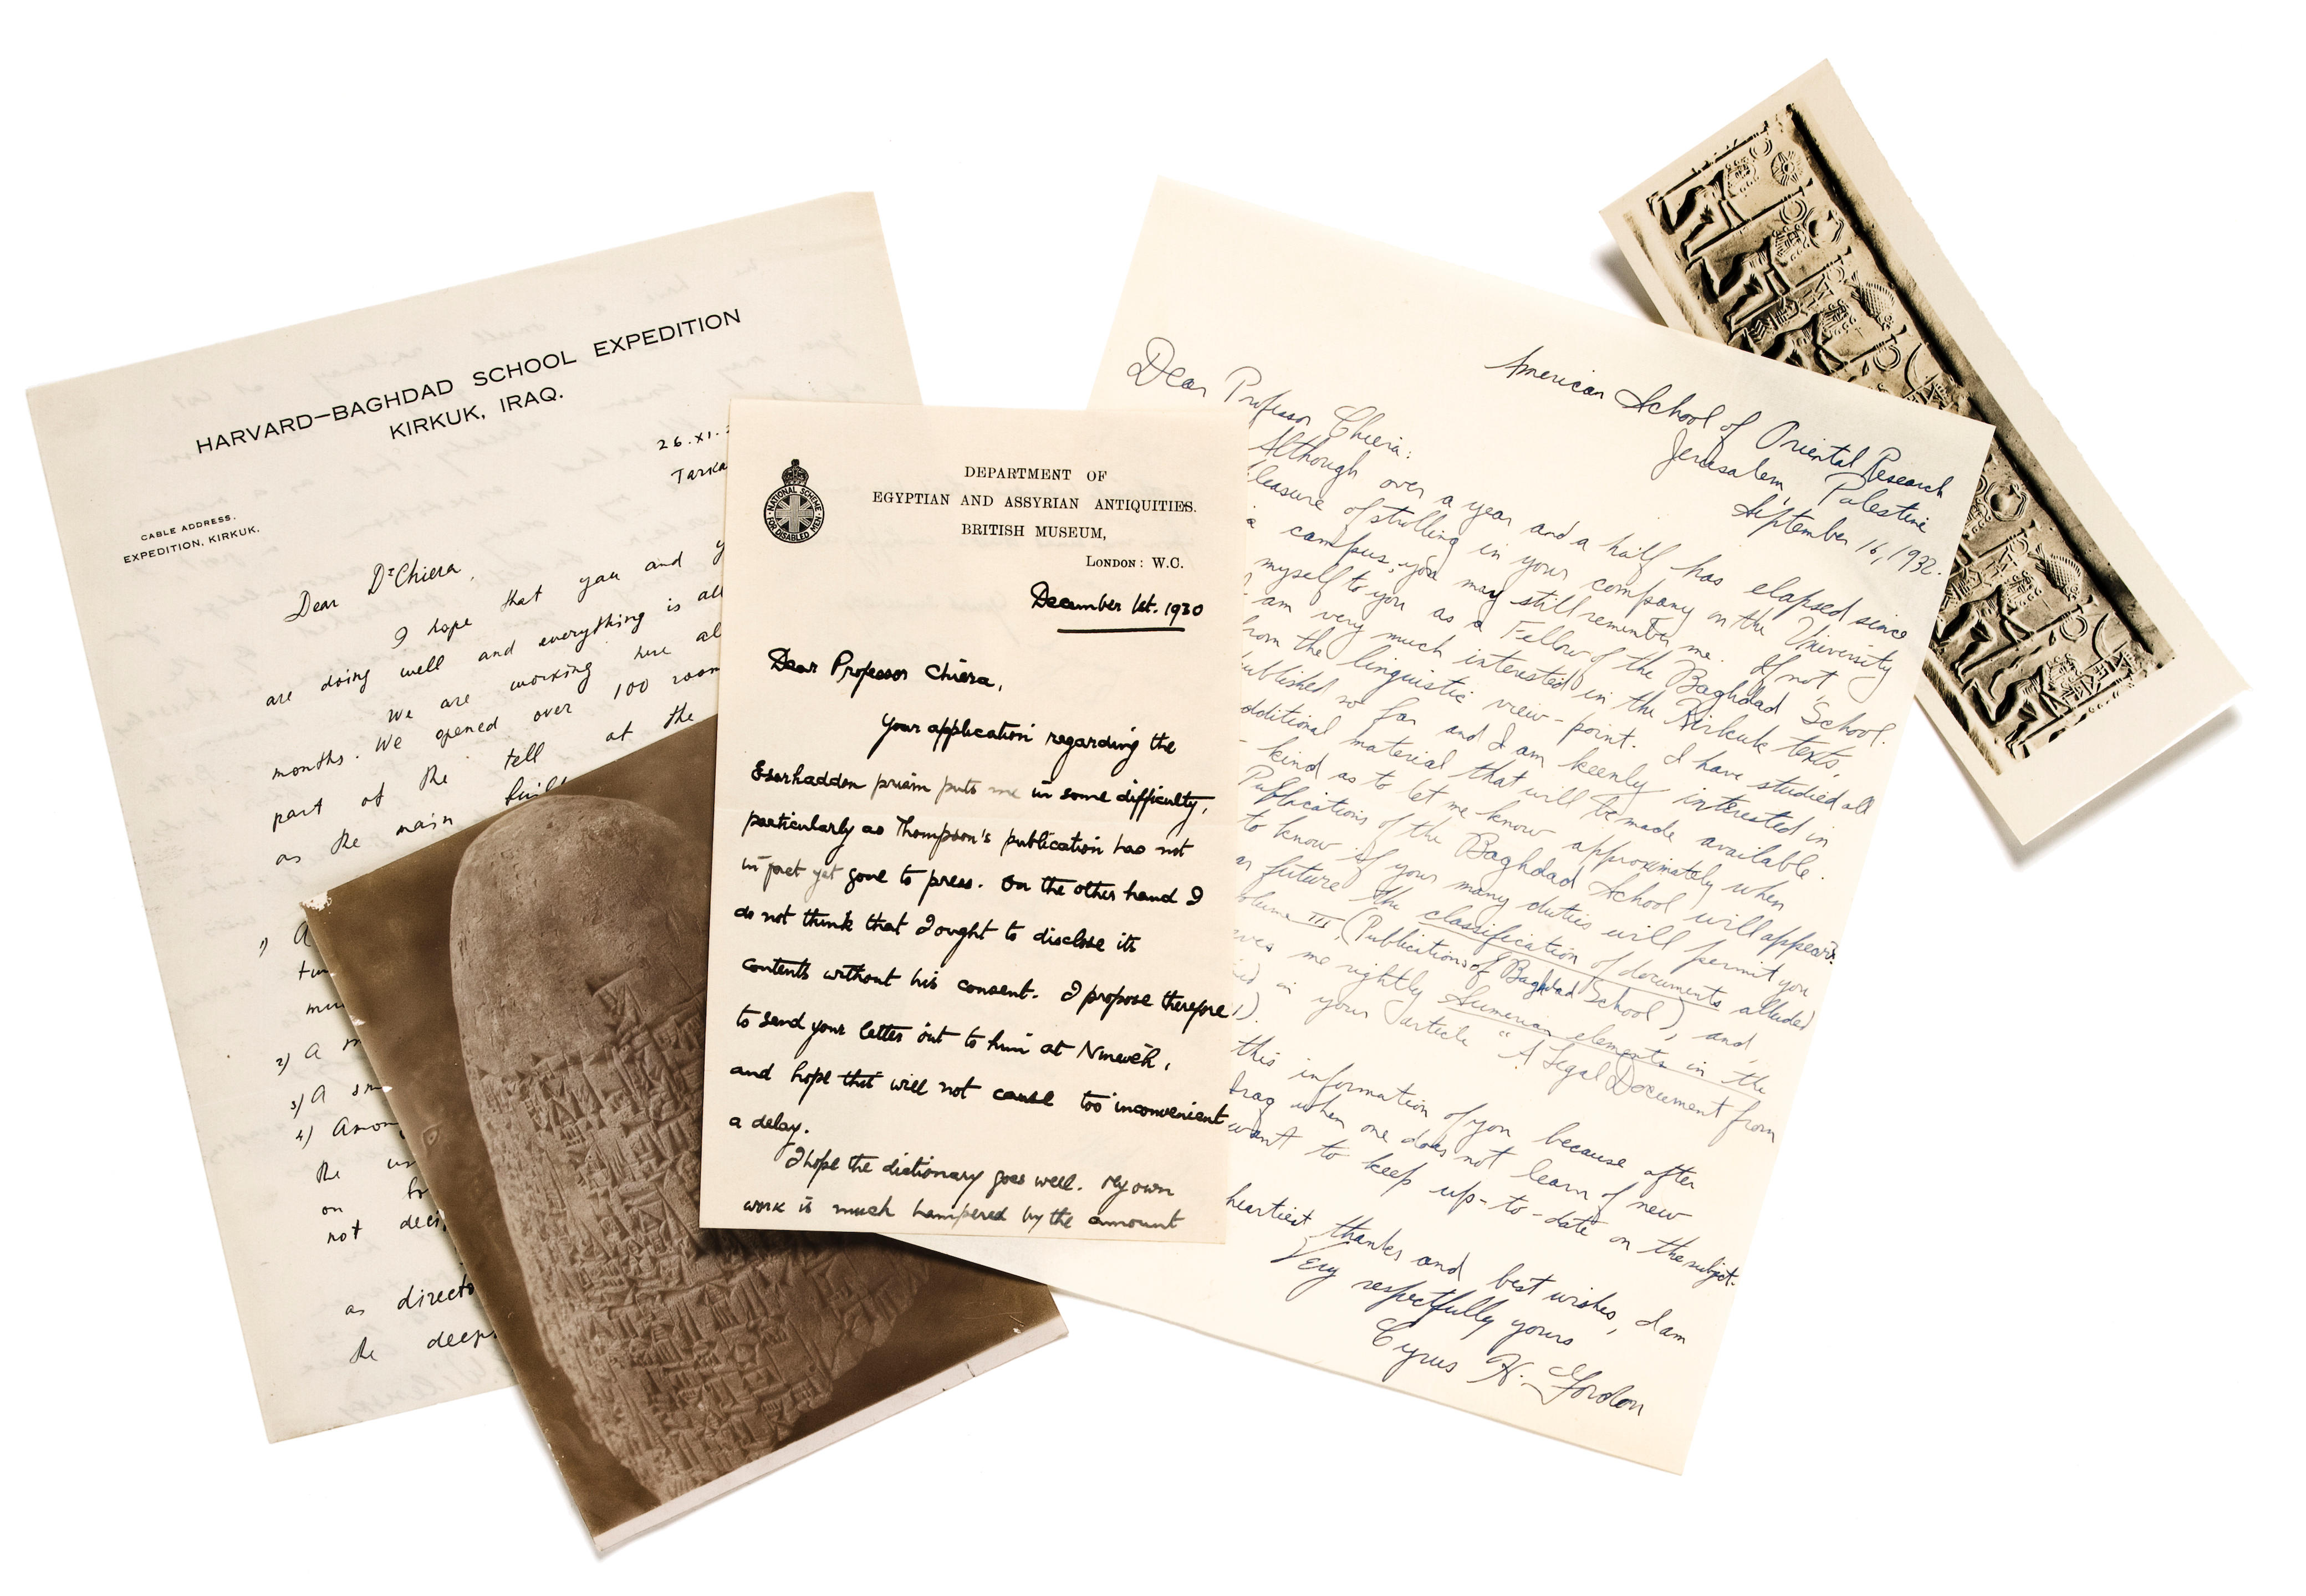 HARVARD–BAGHDAD SCHOOL EXPEDITION
KIRKUK, IRAQ.
26.XI.
CABLE ADDRESS,
EXPEDITION, KIRKUK.
Dear Dr Chiera,
I hope that you and
are doing well and everything is
We are working here
months. We opened over 100
part of the tell at the
as the main
1) A
2) A
3) A
4)
the
on
not
as
the
DEPARTMENT OF
EGYPTIAN AND ASSYRIAN ANTIQUITIES.
BRITISH MUSEUM,
LONDON: W.C.
NATIONAL SCHEME FOR DISABLED MEN
December 1st. 1930
Dear Professor Chiera,
Your application regarding the
Esarhaddon prism puts me in some difficulty,
particularly as Thompson's publication has not
in fact yet gone to press. On the other hand I
do not think that I ought to disclose its
contents without his consent. I propose therefore
to send your letter out to him at Nineveh,
and hope that will not cause too inconvenient
a delay.
I hope the dictionary goes well. My own
work is much hampered by the amount
American School of Oriental Research
Jerusalem, Palestine
September 16, 1932.
Dear Professor Chiera:
Although over a year and a half has elapsed since
pleasure of strolling in your company on the University
campus, you may still remember me. If not,
myself to you as a Fellow of the Baghdad School.
am very much interested in the Kirkuk texts,
from the linguistic view-point. I have studied all
published so far and I am keenly interested in
additional material that will be made available.
kind as to let me know approximately when
Publications of the Baghdad School will appear?
to know if your many duties will permit you
future the classification of documents alluded
Volume III (Publications of Baghdad School), and,
me rightly Sumerian elements in the
in your article "A Legal Document from
this information of you because after
Iraq when one does not learn of new
want to keep up-to-date on the subject.
heartiest thanks and best wishes, I am
Very respectfully yours
Cyrus H. Gordon